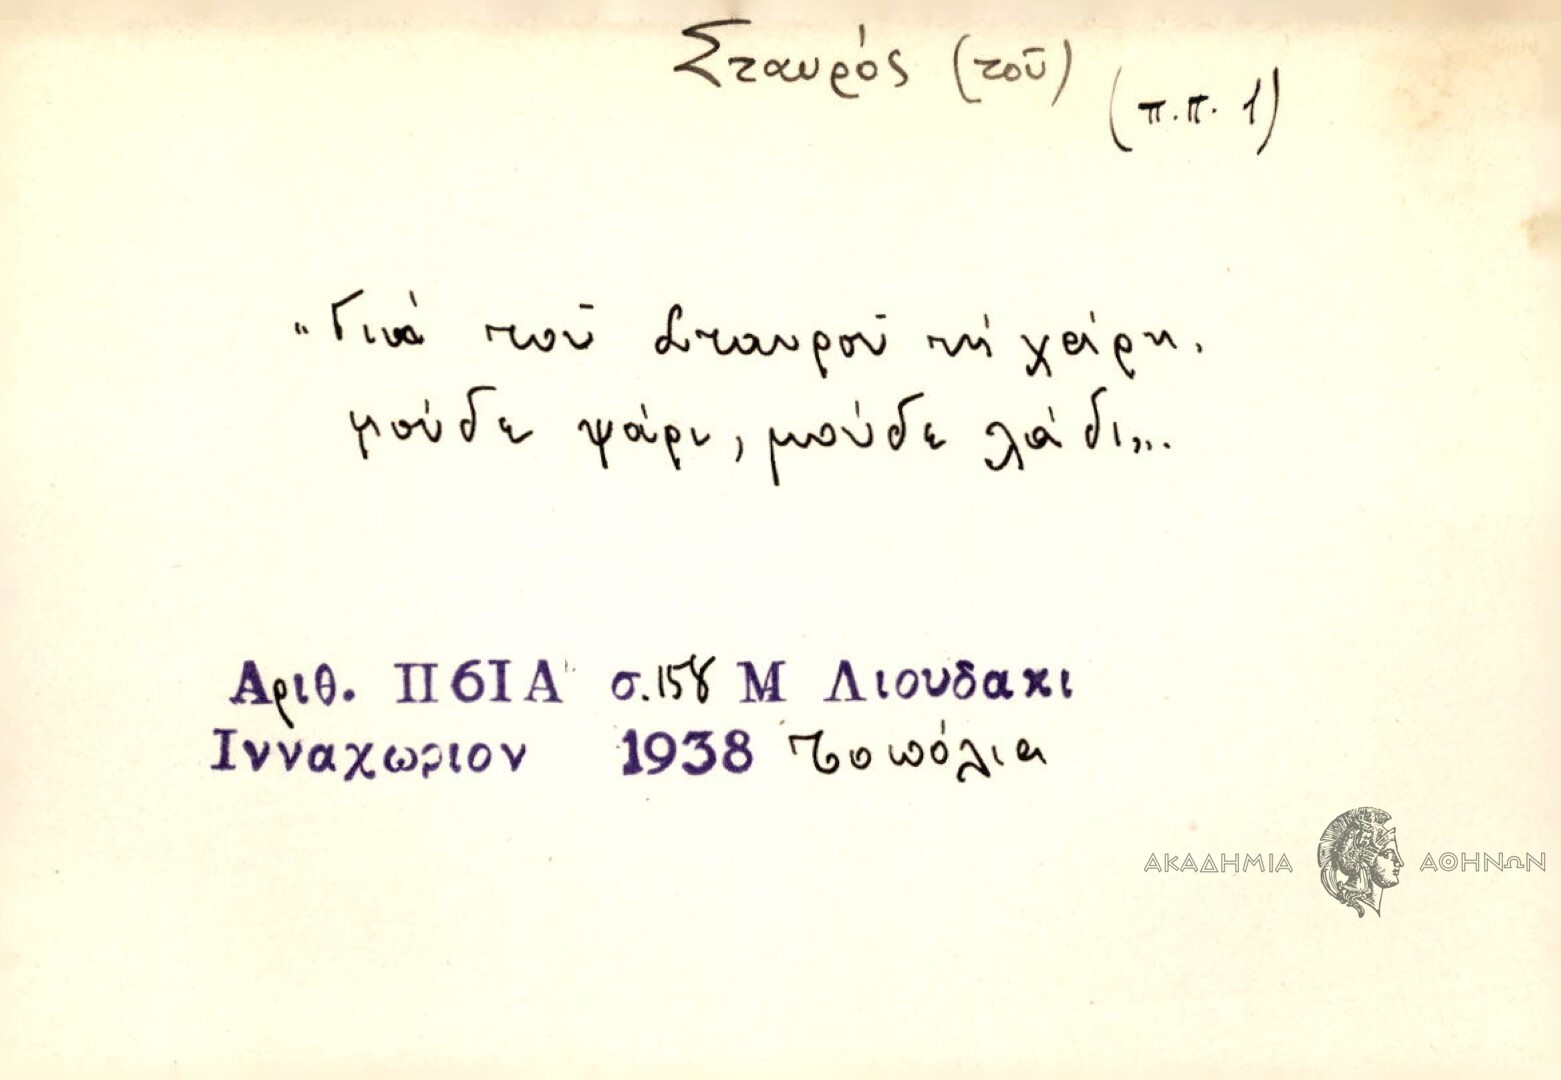 Σταυρός (τοῦ)
(π.π. 1)
"Γιὰ τοῦ Σταυροῦ τὴ χάρη.
μούδε ψάρι, μούδε λάδι"..
Αριθ. Π6ΙΑ σ.158 Μ Λιουδακι
Ινναχωριον 1938 Τοπόλια
ΑΚΑΔΗΜΙΑ ΑΘΗΝΩΝ